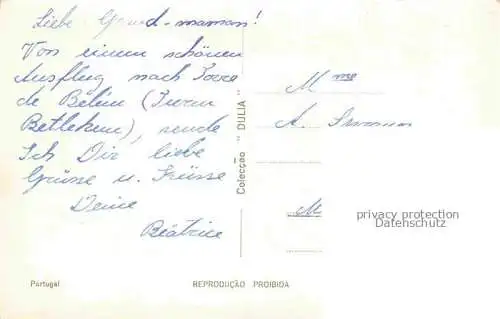 Liebe Grand-maman!
Von einem schönen
Ausflug nach Torre
de Belém (Turm
Betlehem), sende
Ich Dir liebe
Grüsse u. Küsse
Deine
Béatrice
Colecção "DULIA"
Mme
A.
M
privacy protection
Datenschutz
Portugal
REPRODUÇÃO PROIBIDA